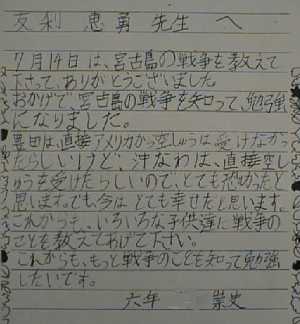 友利 恵勇 先生 へ
7月14日は、宮古島の戦争を教えて
下さって、ありがとうございました。
おかげで、宮古島の戦争を知って、勉強
になりました。
豊田は、直接アメリカから空しゅうは受けなかっ
たらしいけど、沖なわは、直接空し
ゅうを受けたらしいので、とても恐かったと
思います。でも、今はとても幸せだと思います。
これからも、いろいろな子供達に戦争の
ことを教えてあげて下さい。
これからも、もっと戦争のことを知って勉強
したいです。
六年 崇史